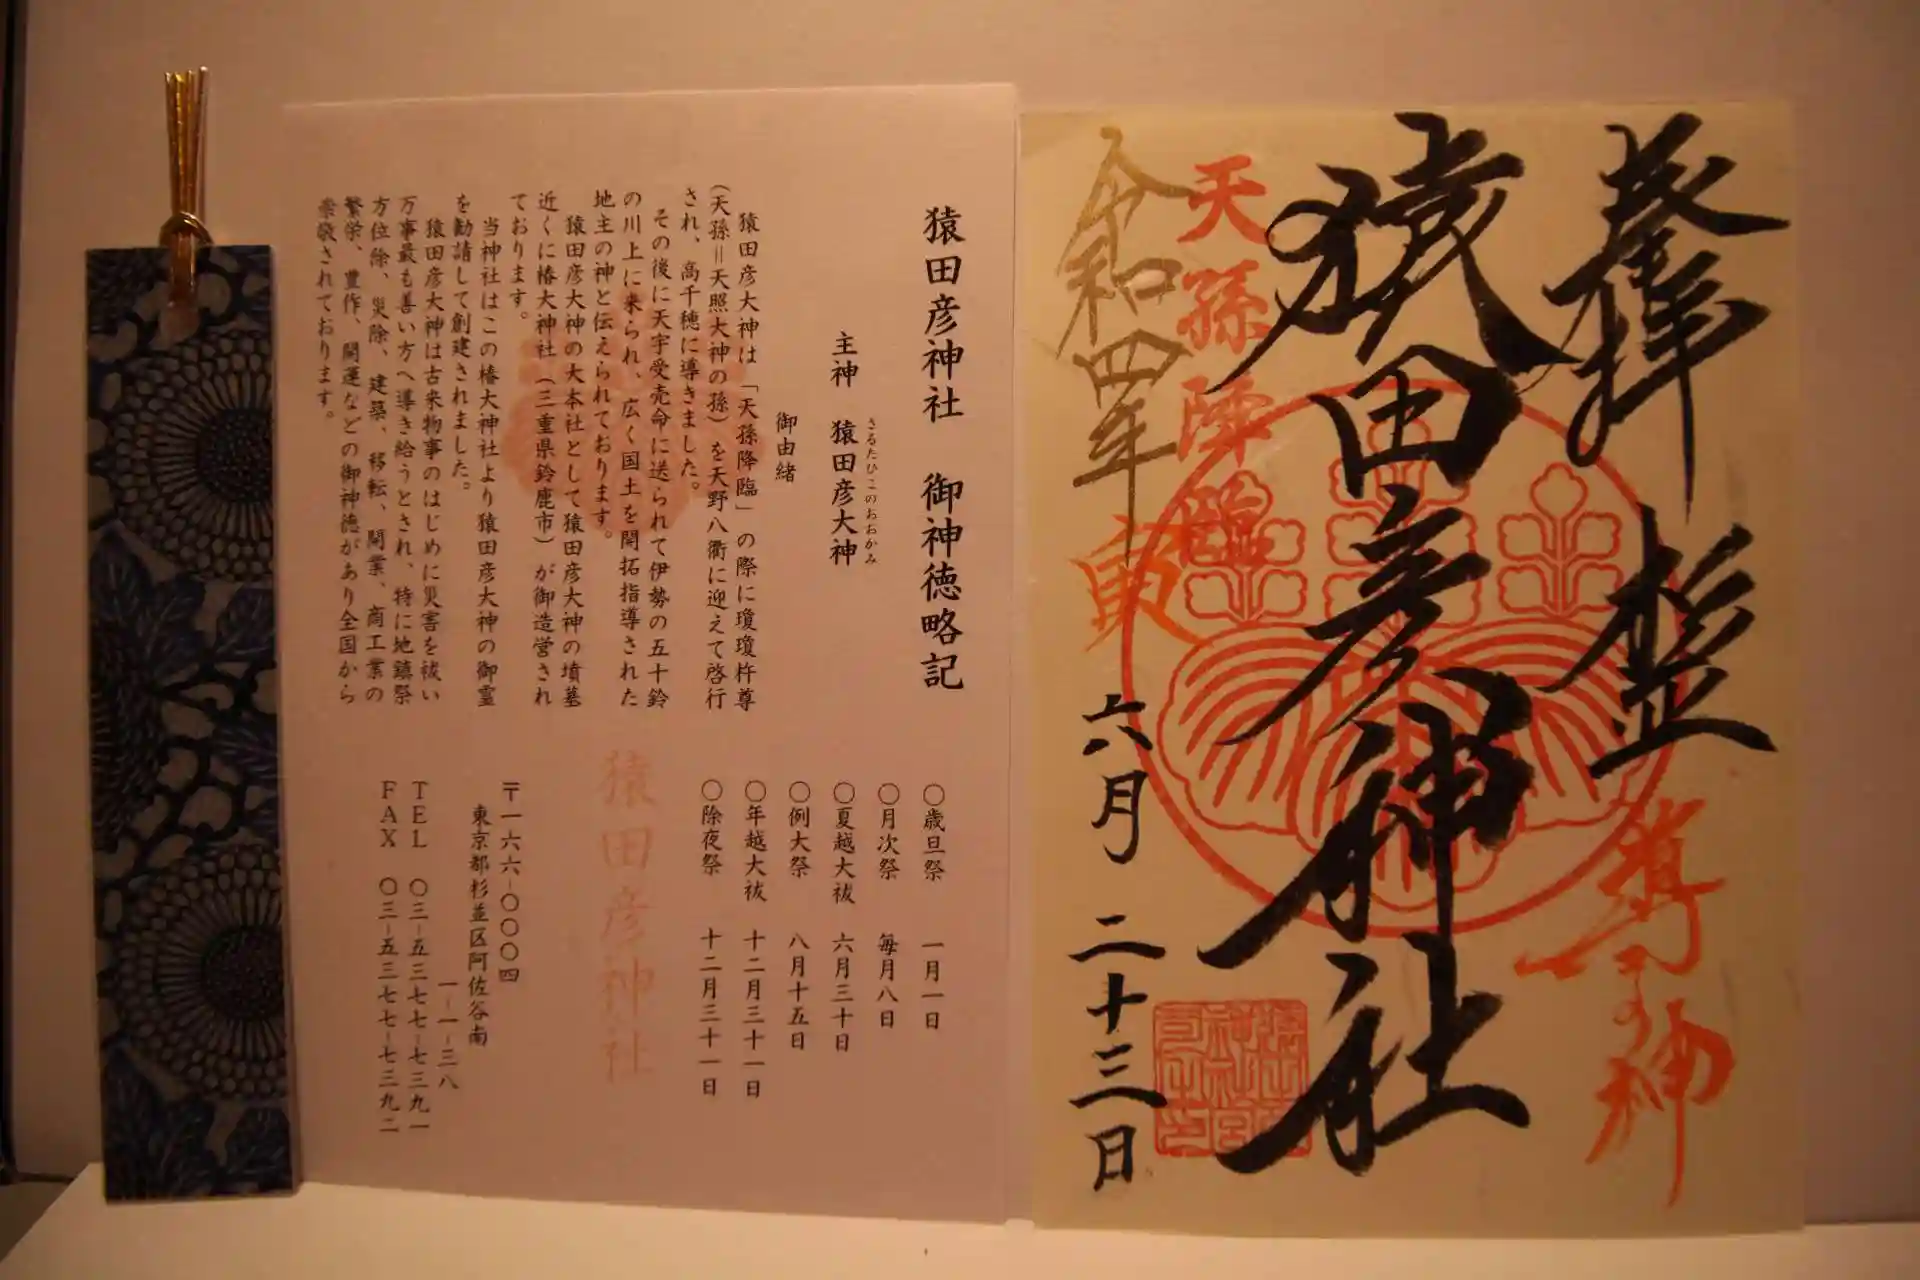 奉拝
杉並
導きの神
猿田彦神社
天孫降臨
令和四年
寅
六月二十三日
猿田彦神社 御神徳略記
主神 猿田彦大神
さるたひこのおおかみ
御由緒
猿田彦大神は「天孫降臨」の際に瓊瓊杵尊
(天孫=天照大神の孫)を天野八衢に迎えて啓行
され、高千穂に導きました。
その後に天宇受売命に送られて伊勢の五十鈴
の川上に来られ、広く国土を開拓指導された
地主の神と伝えられております。
猿田彦大神の大本社として猿田彦大神の墳墓
近くに椿大神社(三重県鈴鹿市)が御造営され
ております。
当神社はこの椿大神社より猿田彦大神の御霊
を勧請して創建されました。
猿田彦大神は古来物事のはじめに災害を祓い
万事最も善い方へ導き給うとされ、特に地鎮祭
方位除、災除、建築、移転、開業、商工業の
繁栄、豊作、開運などの御神徳があり全国から
崇敬されております。
〇歳旦祭 一月一日
〇月次祭 毎月八日
〇夏越大祓 六月三十日
〇例大祭 八月十五日
〇年越大祓 十二月三十一日
〇除夜祭 十二月三十一日
猿田彦神社
〒一六六-〇〇〇四
東京都杉並区阿佐谷南
一-一-三八
TEL 〇三-五三七七-七三九一
FAX 〇三-五三七七-七三九二